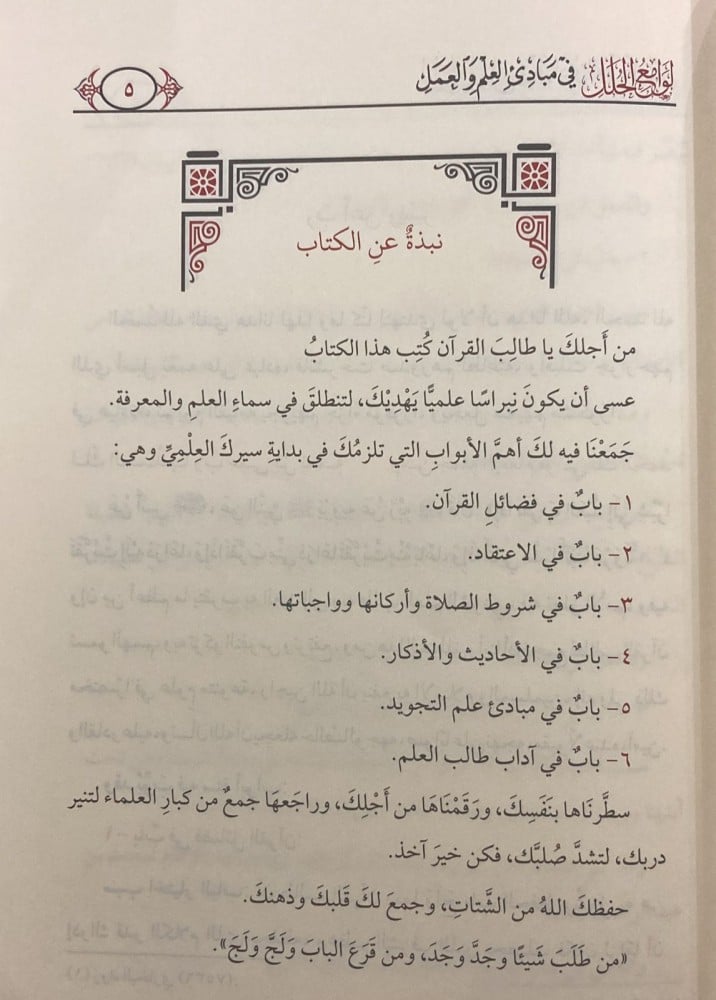 لوامع الحلل في مبادئ العلم والعمل
٥
نبذةٌ عنِ الكتاب
من أَجلكَ يا طالِبَ القرآن كُتِب هذا الكتابُ
عسى أن يكونَ نِبراسًا علميًّا يَهْدِيْكَ، لتنطلقَ في سماءِ العلمِ والمعرفة.
جَمَعْنَا فيه لكَ أهمَّ الأبوابِ التي تلزمُكَ في بدايةِ سيركَ العِلْمِيِّ وهي:
١- بابٌ في فضائلِ القرآن.
٢- بابٌ في الاعتقاد.
٣- بابٌ في شروط الصلاة وأركانها وواجباتها.
٤- بابٌ في الأحاديث والأذكار.
٥- بابٌ في مبادئ علم التجويد.
٦- بابٌ في آداب طالب العلم.
سطَّرنَاها بنَفَسِكَ، ورَقَمْنَاهَا من أَجْلِكَ، وراجَعهَا جمعٌ من كبارِ العلماء لتنير
دربك، لتشدَّ صُلبَّك، فكن خيرَ آخذ.
حفظكَ اللهُ من الشَّتاتِ، وجمعَ لكَ قَلبكَ وذهنكَ.
«من طَلَبَ شَيئًا وجَدَّ وَجَدَ، ومن قَرَعَ البابَ وَلَجَّ وَلَجَ».